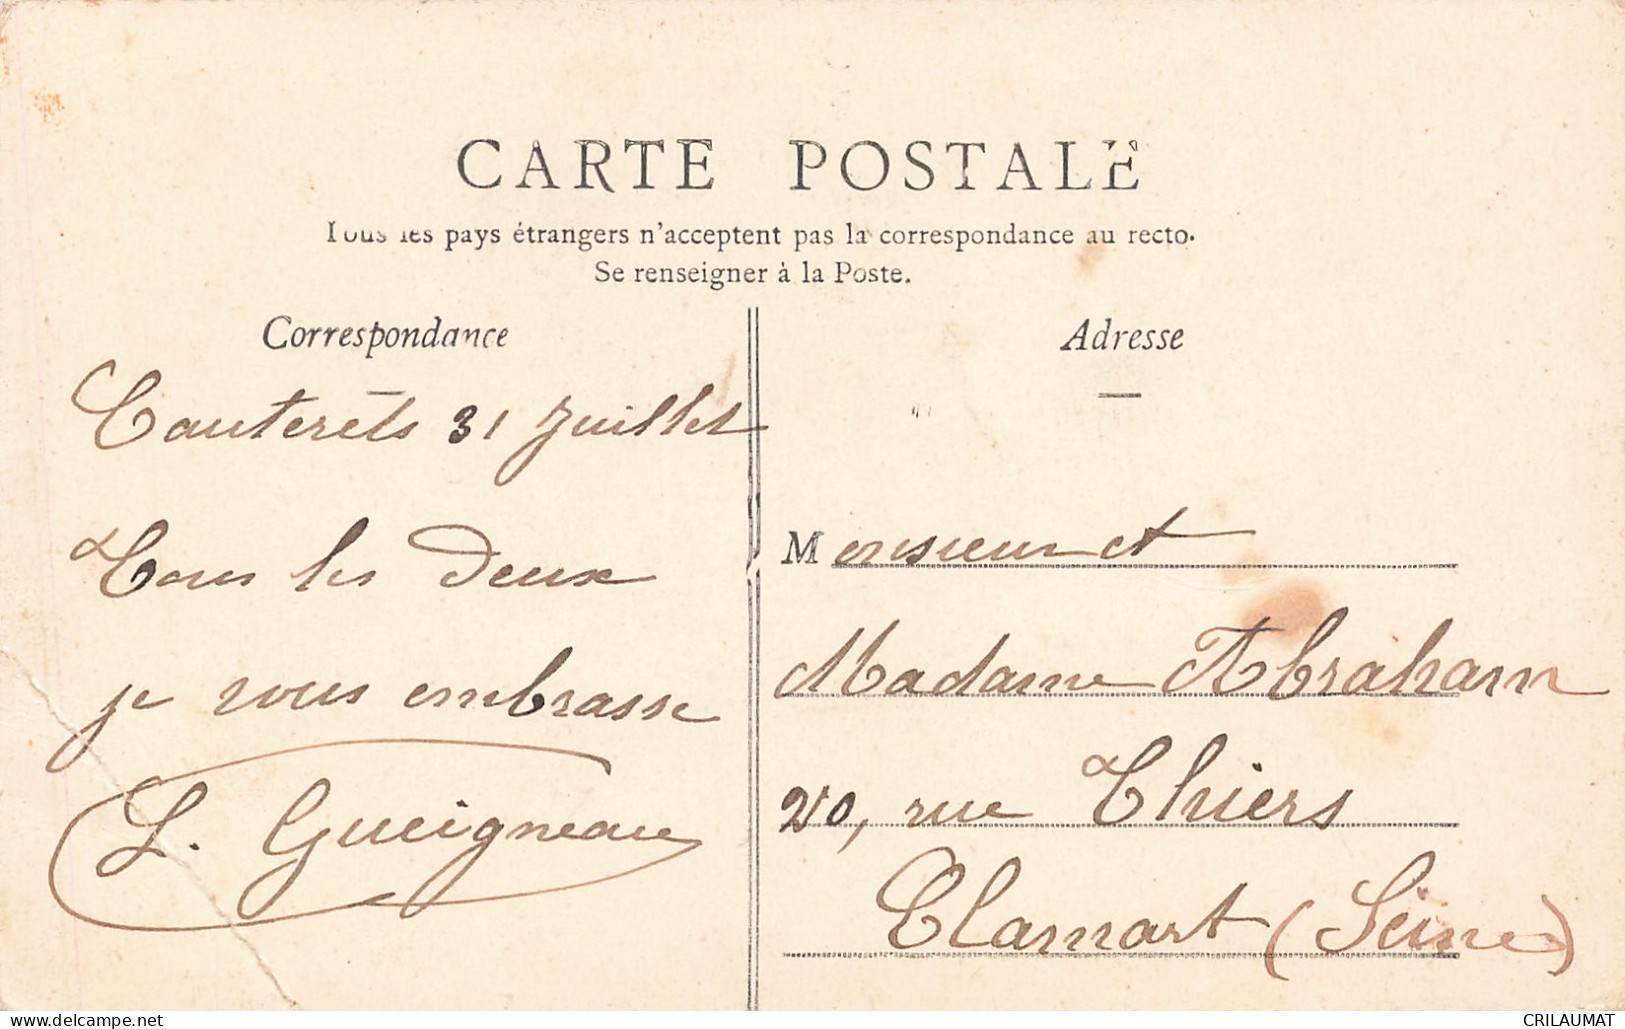 CARTE POSTALE
Tous les pays étrangers n'acceptent pas la correspondance au recto.
Se renseigner à la Poste.
Correspondance
Cauterêts 31 Juillet
Tous les deux
je vous embrasse
L. Gueigneau
Adresse
Monsieur et
Madame Abraham
20, rue Thiers
Clamart (Seine)
delcampe.net
CRILAUMAT